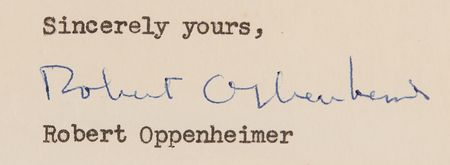 Sincerely yours,
Robert Oppenheimer
Robert Oppenheimer